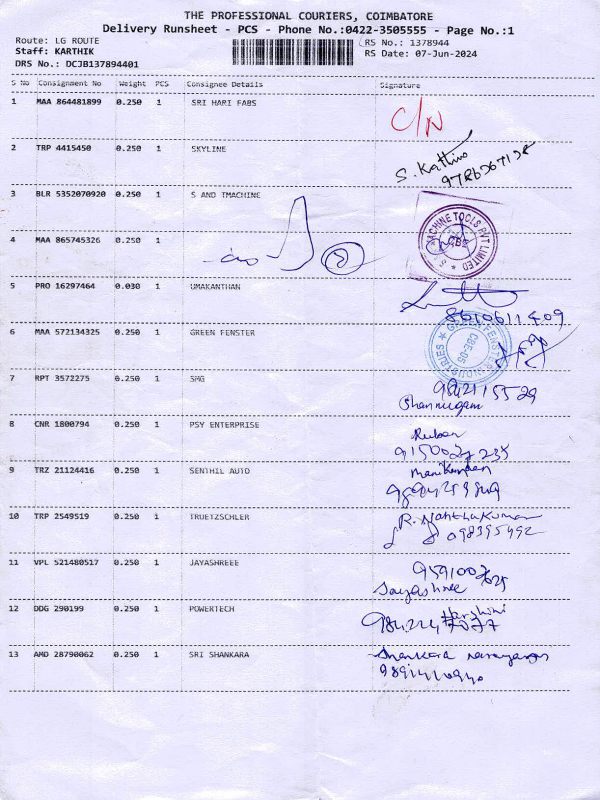 THE PROFESSIONAL COURIERS, COIMBATORE
Delivery Runsheet - PCS - Phone No.:0422-3505555 - Page No.:1
Route: LG ROUTE RS No.: 1378944
Staff: KARTHIK RS Date: 07-Jun-2024
DRS No.: DCJB137894401
S No Consignment No Weight PCS Consignee Details Signature
1 MAA 864481899 0.250 1 SRI HARI FABS C/N
2 TRP 4415450 0.250 1 SKYLINE S. Kathir
3 BLR 5352070920 0.250 1 S AND TMACHINE MACHINE TOOLS PVT LIMITED CBE
4 MAA 865745326 0.250 1
5 PRO 16297464 0.030 1 UMAKANTHAN 8610611409
6 MAA 572134325 0.250 1 GREEN FENSTER GREEN FENSTER INDUSTRIES CBE-05
7 RPT 3572275 0.250 1 SMG 9842115529
Shanmugam
8 CNR 1800794 0.250 1 PSY ENTERPRISE Ruban
9 TRZ 21124416 0.250 1 SENTHIL AUTO Manikandan
10 TRP 2549519 0.250 1 TRUETZSCHLER
11 VPL 521480517 0.250 1 JAYASHREEE
Jayashree
12 DDG 290199 0.250 1 POWERTECH Harshini
13 AMD 28790062 0.250 1 SRI SHANKARA Shankara narayanan